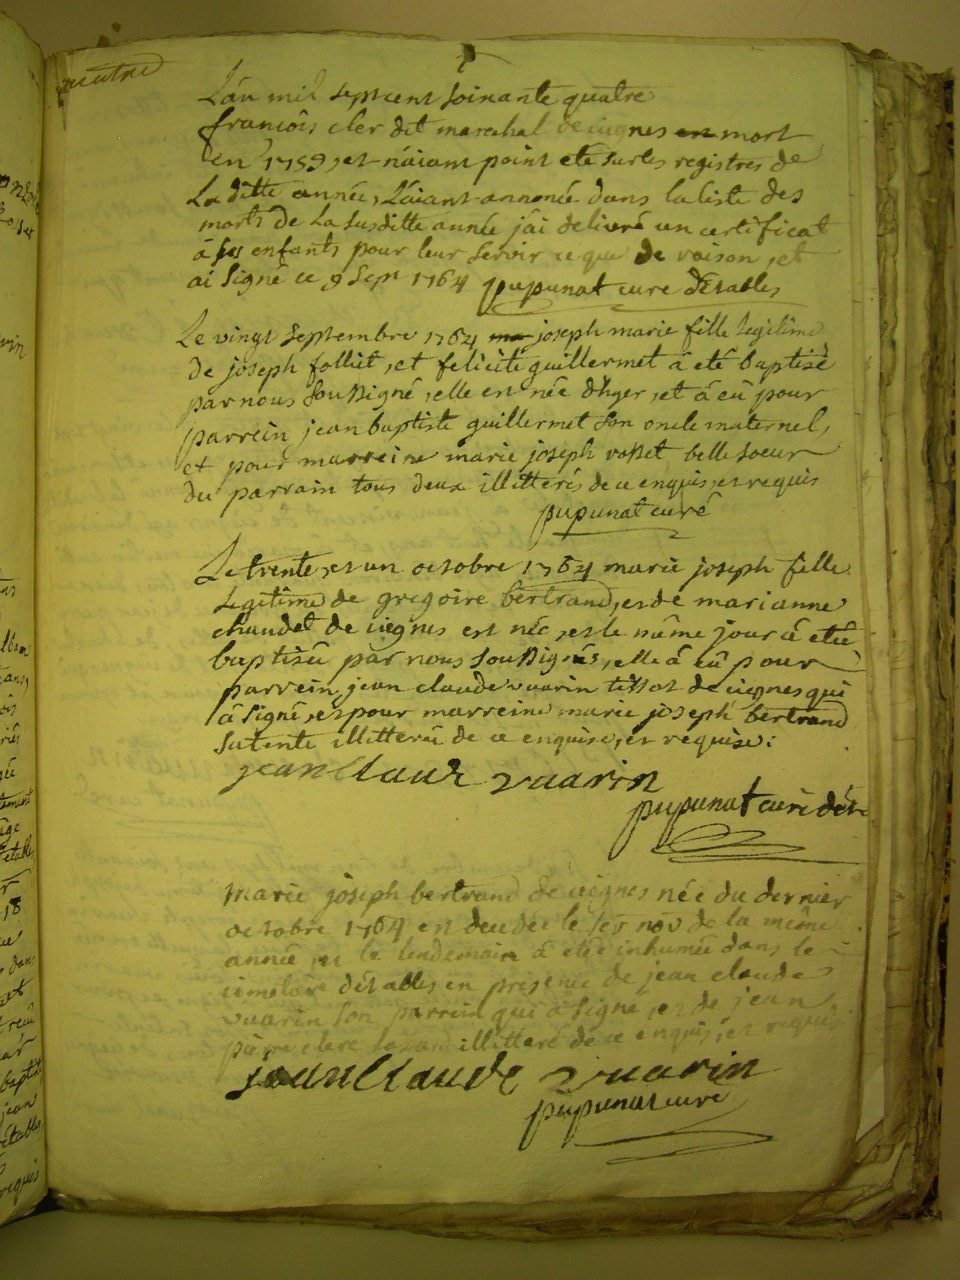 L'an mil septcent soixante quatre
francois cler dit marechal de ciegnes mort
en 1759, et n'aiant point eté sur les registres de
La ditte année, L'aiant annoncé dans la liste des
morts de La susditte année j'ai deliveré un certificat
à ses enfants pour leur servir ce que de raison, et
ai signé ce 9 sepr 1764 pupunat curé d'Etables
Le vingt septembre 1764 joseph marie fille legitime
de joseph folliet, et felicité guillermet à eté baptisé
par nous soussigné, elle est née d'hyer, et à eü pour
parrein jean baptiste guillermet son oncle maternel,
et pour marreine marie joseph vallet belle soeur
du parrain tous deux illitterés de ce enquis, et requis
pupunat curé
Le trente, et un octobre 1764 marie joseph fille
legitime de gregoire bertrand, et de marianne
chaudet de ciegnes est née, et le même jour à etée
baptisée par nous soussignés, elle à eü pour
parrein, jean claude vuarin tissot de ciegnes qui
à signé, et pour marreine marie joseph bertrand
sa tente illitterée de ce enquise, et requise:
jean Claude vuarin
pupunat curé déta
marie joseph bertrand de ciegnes née du dernier
octobre 1764 est decedée le 1er nov de la même
année, et le lendemain à etée inhumée dans le
cimetiere d'Etables, en presence de jean claude
vuarin son parrein qui à signé, et de jean
pierre clerc illitteré de ce enquis, et requis
jean Claude vuarin
pupunat curé